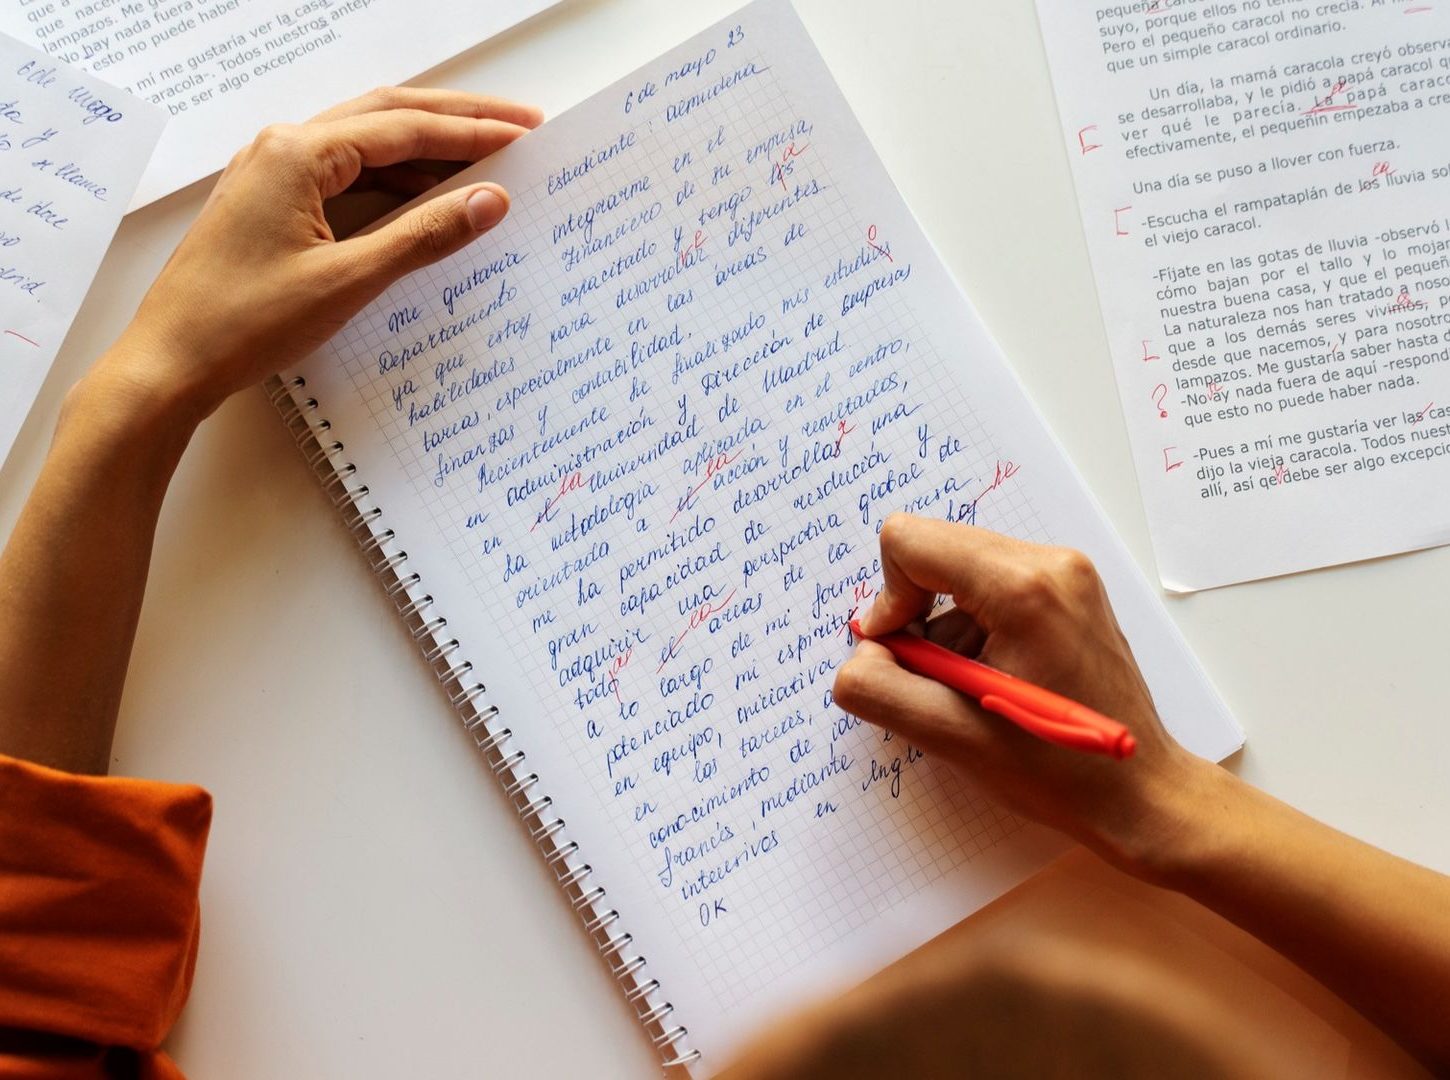 que a
que nacem
lampazos. Me g
-No hay nada fuera
esto no puede haber
a mí me gustaría ver la casa
aracola-. Todos nuestros antep
be ser algo excepcional.
6 de mayo
y
de doce
6 de mayo 23
Estudiante: Almudena
Me gustaría integrarme en el
Departamento Financiero de su empresa,
ya que estoy capacitado y tengo los
a
habilidades para desarrolar diferentes
tareas, especialmente en las áreas de
finanzas y contabilidad.
Recientemente he finalizado mis estudios
o
en administración y Dirección de Empresas
en el Universidad de Madrid.
la
La metodología aplicada en el centro,
orientada a el acción y resultados,
la
me ha permitido desarrollas una
r
gran capacidad de resolución y
adquirir una perspectiva global de
todo el areas de la empresa.
as
la
a lo largo de mi formac haj
he
potenciado mi espiritu
en equipo, iniciativa
en las tareas, a
conocimiento de idi
francés, mediante
intensivos en Inglé
OK
pequeña caracol
suyo, porque ellos no ten
Pero el pequeño caracol no crecía. Al
que un simple caracol ordinario.
Un día, la mamá caracola creyó observ
se desarrollaba, y le pidió a papá caracol q
ver qué le parecía. La papá caraco
efectivamente, el pequeñin empezaba a cre
Una día se puso a llover con fuerza.
-Escucha el rampataplán de los lluvia sol
la
el viejo caracol.
-Fíjate en las gotas de lluvia -observó
cómo bajan por el tallo y lo mojan
nuestra buena casa, y que el pequeñ
La naturaleza nos han tratado a noso
que a los demás seres vivimos, p
desde que nacemos, y para nosotro
lampazos. Me gustaría saber hasta
?
-No ay nada fuera de aquí -respond
que esto no puede haber nada.
-Pues a mí me gustaría ver las cas
dijo la vieja caracola. Todos nuest
allí, así qe debe ser algo excepcio